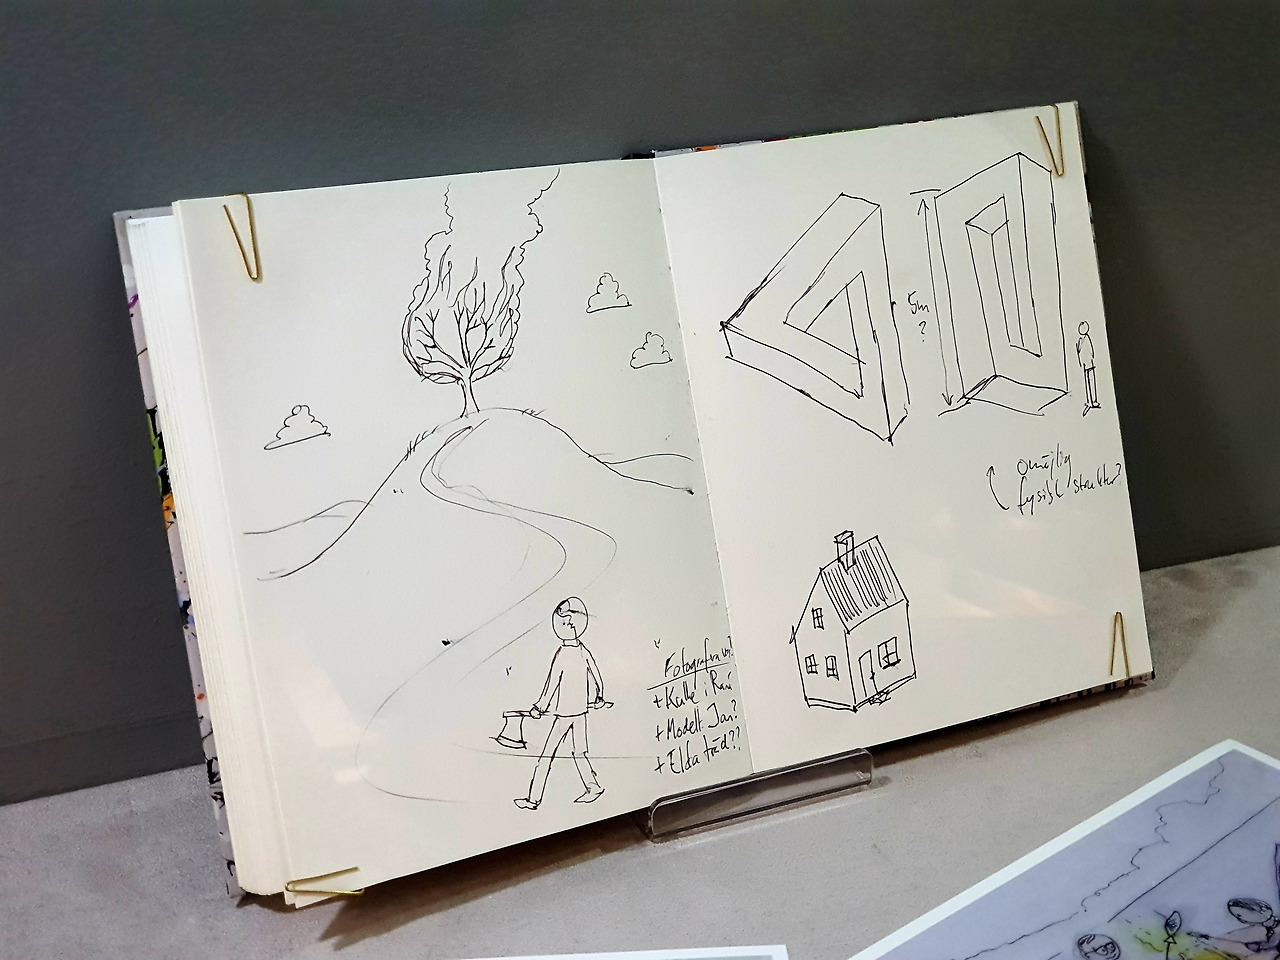 Fotografra
+ Kulle i
+ Modell: Jan?
+ Elda träd??
5m
?
Omöjlig
fysisk struktur?